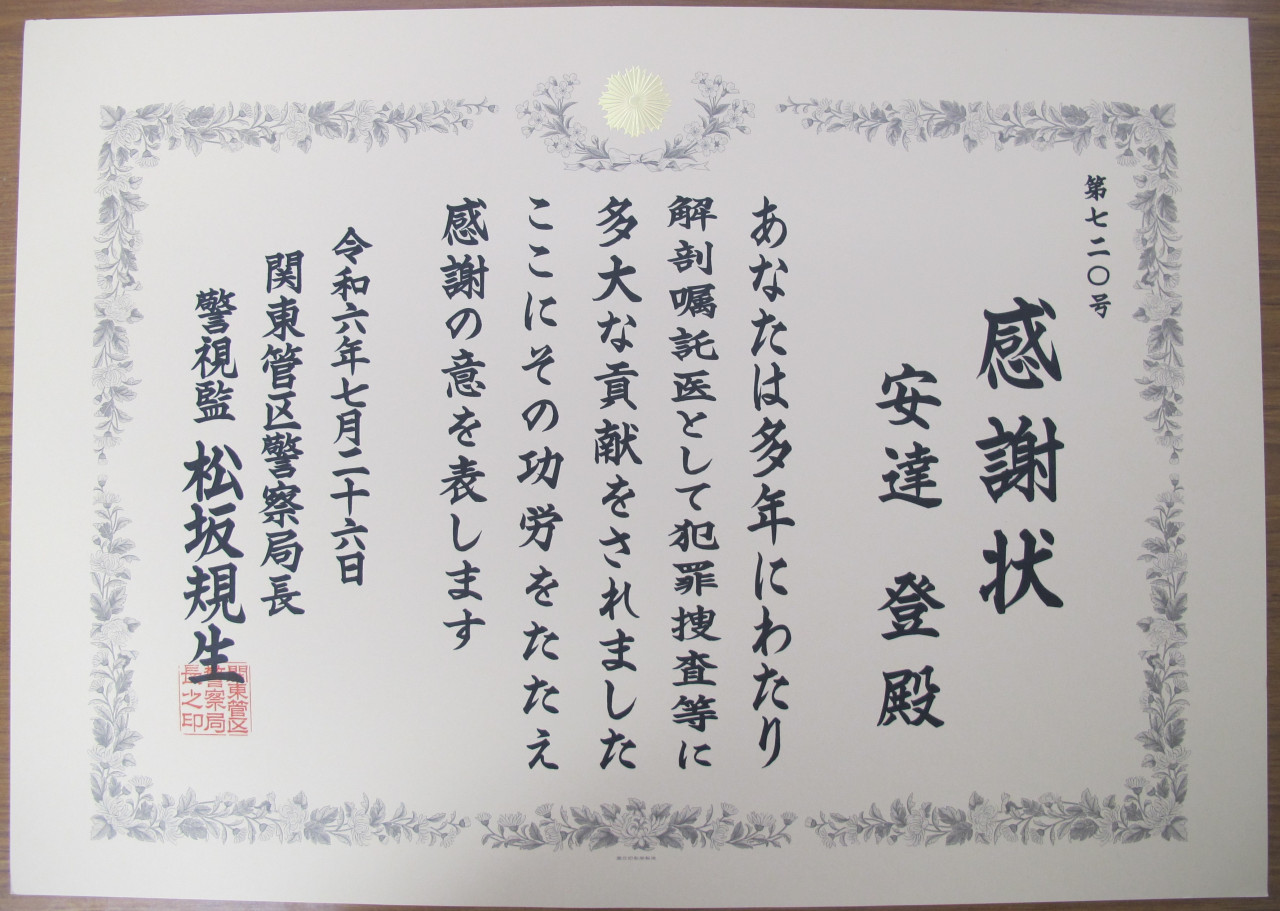 第七二〇号
感謝状
安達 登 殿
あなたは多年にわたり
解剖嘱託医として犯罪捜査等に
多大な貢献をされました
ここにその功労をたたえ
感謝の意を表します
令和六年七月二十六日
関東管区警察局長
警視監 松坂規生
関東管区
警察局
長之印